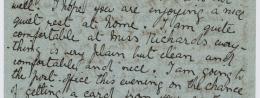 well. I hope you are enjoying a nice
quiet rest at home. I am quite
comfortable at Miss Richards' every-
thing is very plain but clean and
comfortable and nice. I am going to
the post-office this evening on the chance
of getting a card from you